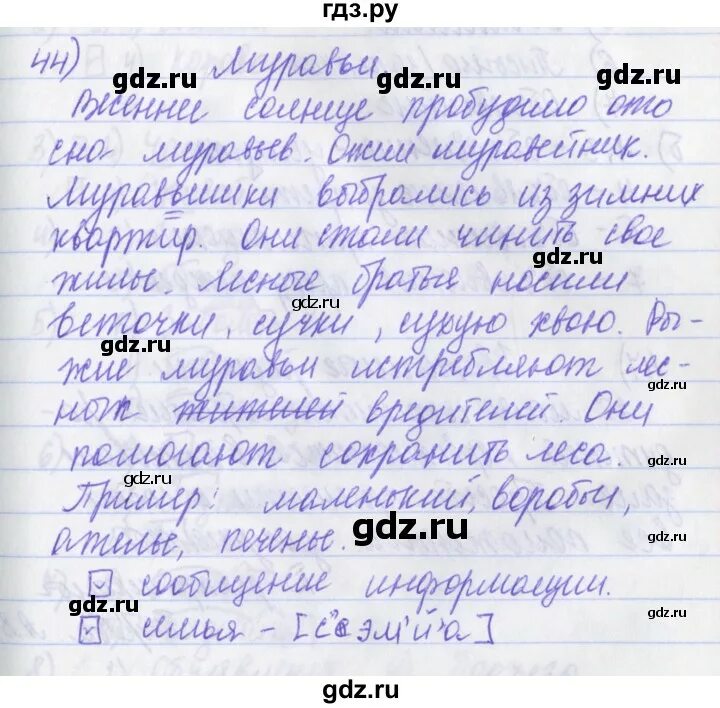 гдз.ру
44) Муравьи.
gdz.ru gdz.ru
Весеннее солнце пробудило ото
сна муравьев. Ожил муравейник.
gdz.ru
Муравьишки выбрались из зимних
квартир. Они стали чинить свое
gdz.ru
жилье. Лесные братья носили
gdz.ru
веточки, сучки, сухую хвою. Ры-
gdz.ru
жие муравьи истребляют лес-
gdz.ru
ных жителей вредителей. Они
помогают сохранить леса.
gdz.ru
gdz.ru
Пример: маленький, воробьи,
ателье, печенье.
gdz.ru
сообщение информации.
gdz.ru gdz.ru
семья - [с'эм'й'а]
gdz.ru